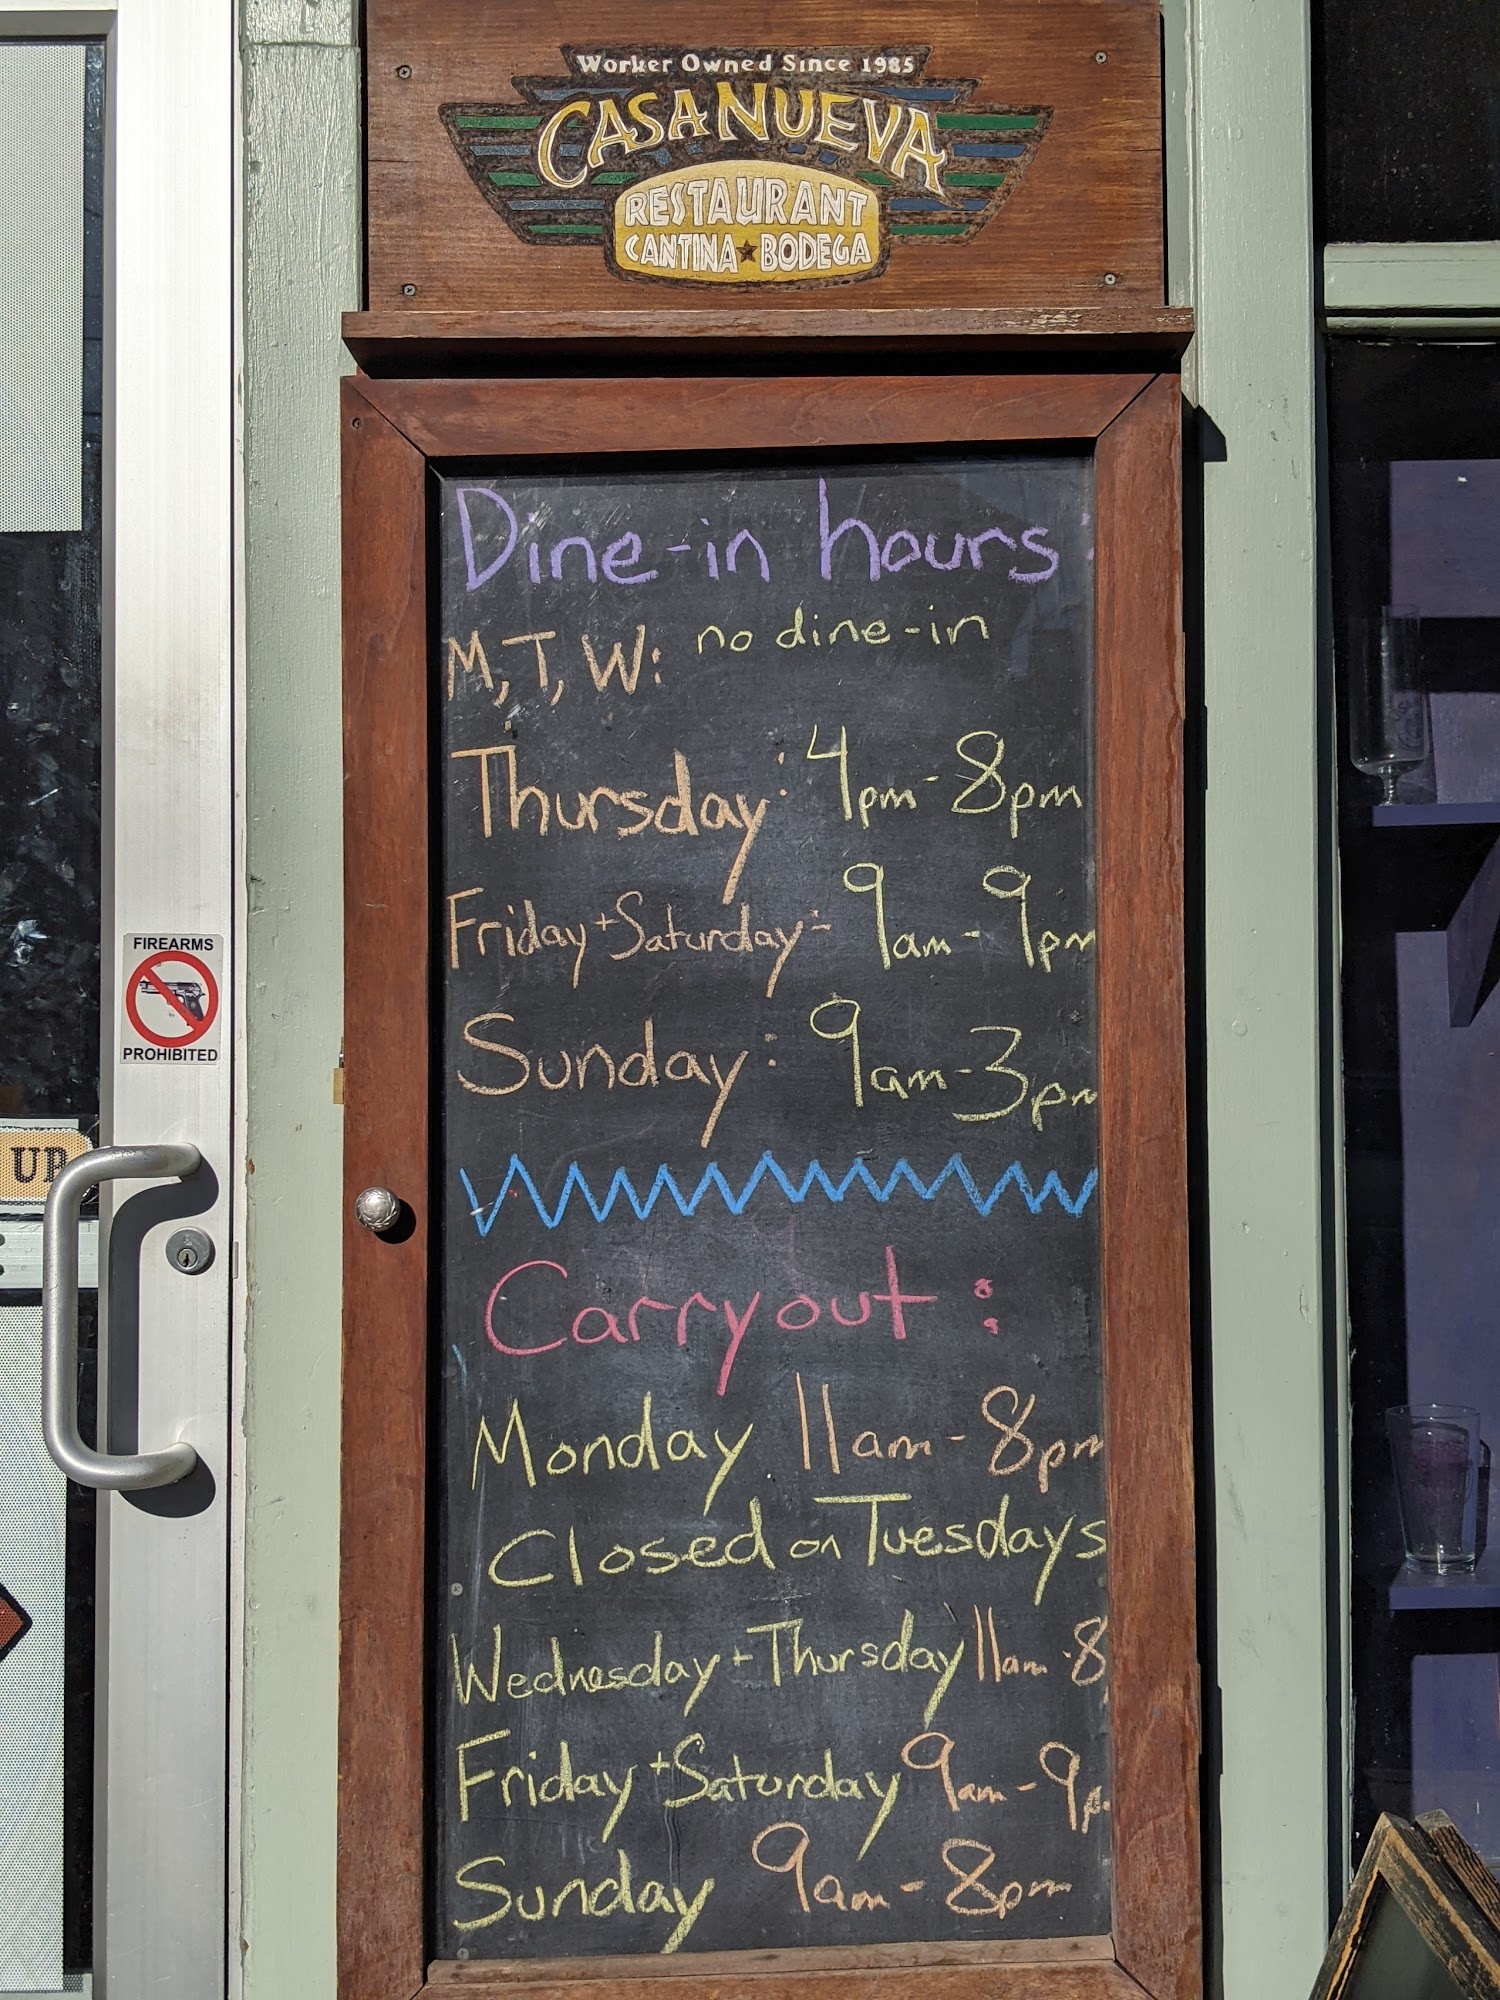 Worker Owned Since 1985
CASA NUEVA
RESTAURANT
CANTINA ★ BODEGA
Dine-in hours:
M, T, W: no dine-in
Thursday: 4pm-8pm
Friday + Saturday:- 9am-9pm
Sunday: 9am-3pm
FIREARMS
PROHIBITED
UP
Carryout:
Monday 11am-8pm
Closed on Tuesdays
Wednesday + Thursday 11am-8
Friday + Saturday 9am-9p
Sunday 9am-8pm